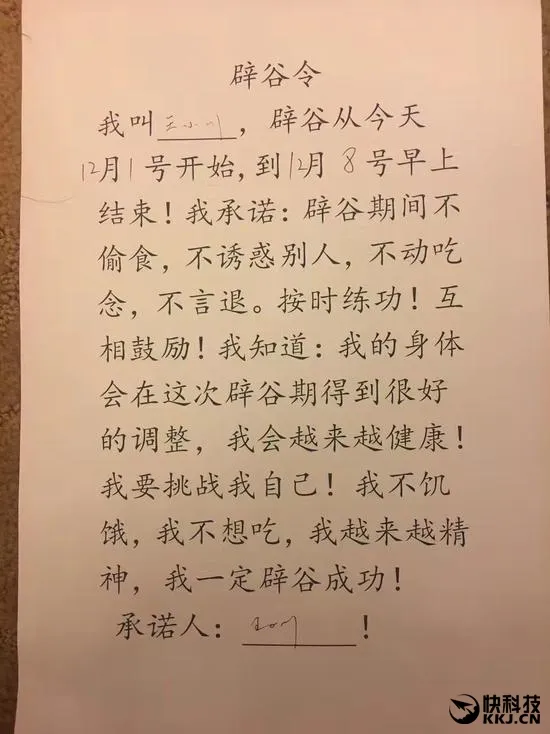 辟谷令
我叫王小川，辟谷从今天
12月1号开始,到12月8号早上
结束！我承诺：辟谷期间不
偷食，不诱惑别人，不动吃
念，不言退。按时练功！互
相鼓励！我知道：我的身体
会在这次辟谷期得到很好
的调整，我会越来越健康！
我要挑战我自己！我不饥
饿，我不想吃，我越来越精
神，我一定辟谷成功！
承诺人：王小川！
快科技
KKJ.CN